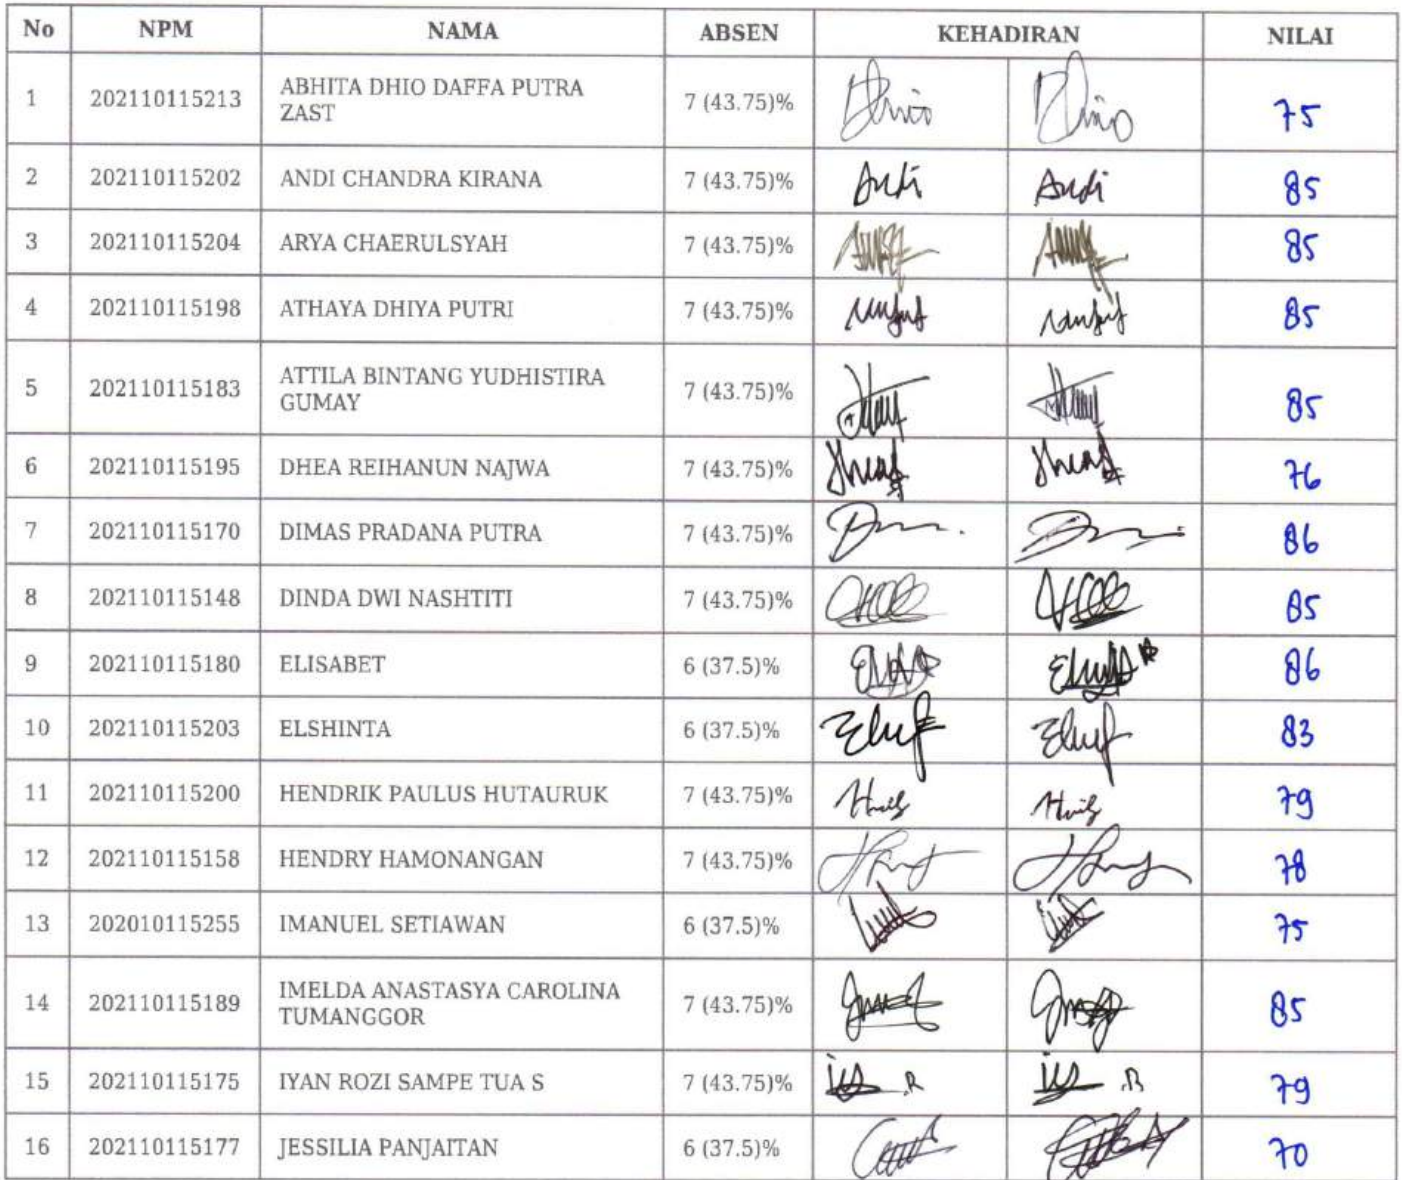 No NPM NAMA ABSEN KEHADIRAN NILAI
1 202110115213 ABHITA DHIO DAFFA PUTRA 7 (43.75)% Dhio Dhio 75
ZAST
2 202110115202 ANDI CHANDRA KIRANA 7 (43.75)% Andi Andi 85
3 202110115204 ARYA CHAERULSYAH 7 (43.75)% 85
4 202110115198 ATHAYA DHIYA PUTRI 7 (43.75)% 85
5 202110115183 ATTILA BINTANG YUDHISTIRA 7 (43.75)% 85
GUMAY
6 202110115195 DHEA REIHANUN NAJWA 7 (43.75)% 76
7 202110115170 DIMAS PRADANA PUTRA 7 (43.75)% 86
8 202110115148 DINDA DWI NASHTITI 7 (43.75)% 85
9 202110115180 ELISABET 6 (37.5)% 86
10 202110115203 ELSHINTA 6 (37.5)% 83
11 202110115200 HENDRIK PAULUS HUTAURUK 7 (43.75)% 79
12 202110115158 HENDRY HAMONANGAN 7 (43.75)% 78
13 202010115255 IMANUEL SETIAWAN 6 (37.5)% 75
14 202110115189 IMELDA ANASTASYA CAROLINA 7 (43.75)% 85
TUMANGGOR
15 202110115175 IYAN ROZI SAMPE TUA S 7 (43.75)% 79
16 202110115177 JESSILIA PANJAITAN 6 (37.5)% 70